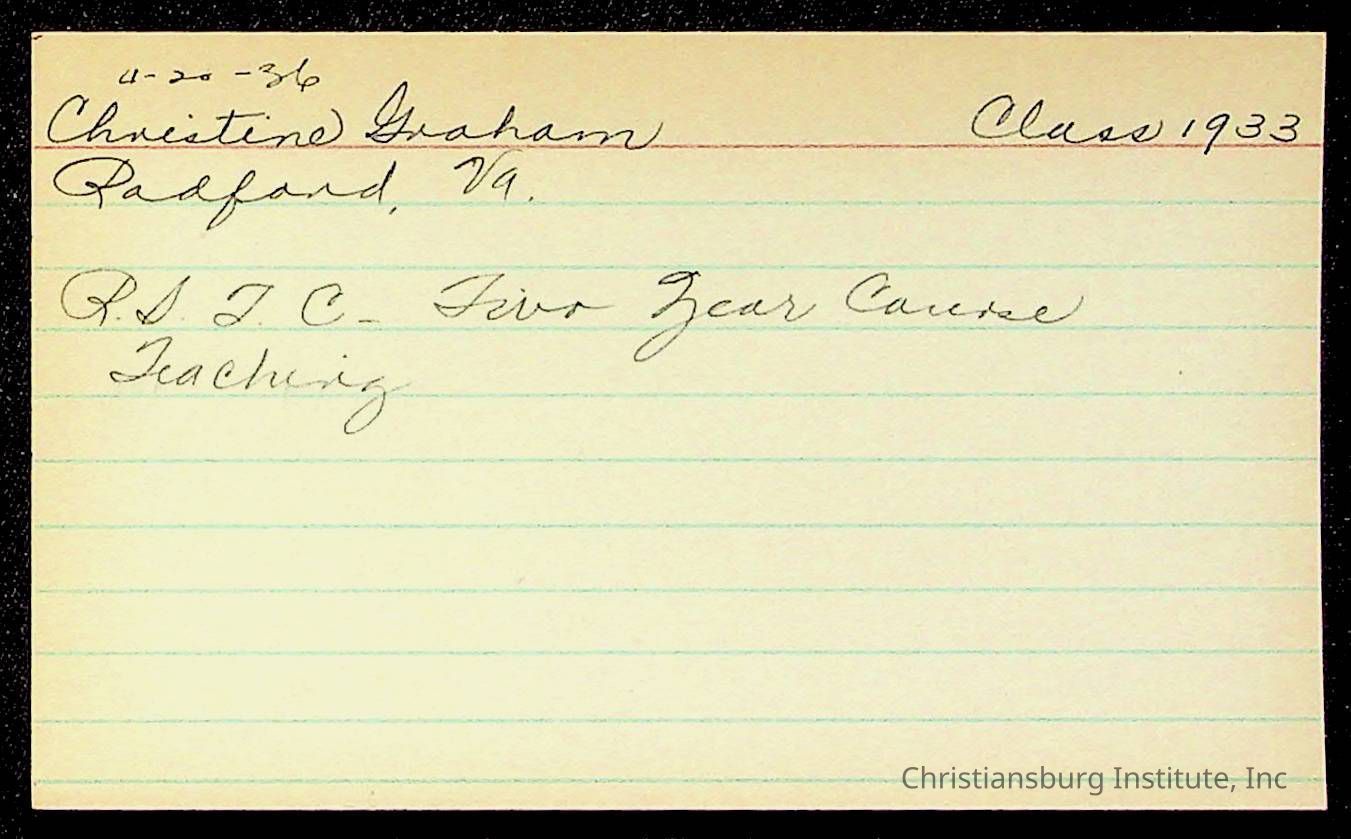 11-20-36
Christine Graham Class 1933
Radford, Va.
R. S. T. C- Two Year Course
Teaching
Christiansburg Institute, Inc